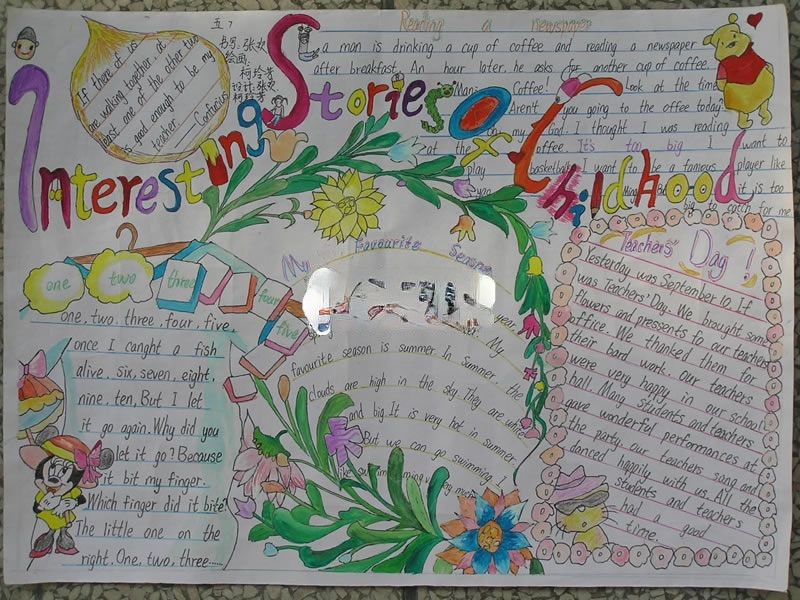 五7
书写:张如
绘画:
柯玲芳
设计:张如
柯玲芳
Interesting Stories Of Childhood
If there of us
are walking together at
least one of the other two
is good enough to be my
teacher. —Confucius
Reading a newspaper
a man is drinking a cup of coffee and reading a newspaper
after breakfast. An hour later, he asks for another cup of coffee.
Man: Coffee! Look at the time
Aren't you going to the offee today?
my God. I thought I was reading
at the office. It's too big I want to
play basketball. I want to be a famous player like
Yao Ming. But it is too
big to catch for me
one
two
three
four
five
one, two, three, four, five,
once I caught a fish
alive. six, seven, eight,
nine, ten, But I let
it go again. Why did you
let it go? Because
it bit my finger.
Which finger did it bite?
The little one on the
right. One, two, three......
My Favourite Season
year.
My
favourite season is summer. In Summer, the
clouds are high in the sky. They are white
and big. It is very hot in summer.
But we can go swimming. I
like swimming very much.
Teachers' Day!
Yesterday was September 10. If
was Teachers' Day. We brought some
flowers and pressents to our teachers
office. We thanked them for
their bard work. our teachers
were very happy in our school
hall. Many students and teachers
gave wonderful performances at
the party. our teachers sang and
danced happily with us. All the
students and teachers
had a good
time.